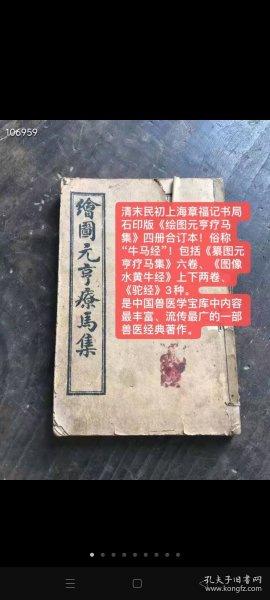 106959
繪圖元亨療馬集
清末民初上海章福记书局
石印版《绘图元亨疗马
集》四册合订本！俗称
“牛马经”！包括《纂图元
亨疗马集》六卷、《图像
水黄牛经》上下两卷、
《驼经》3种。
是中国兽医学宝库中内容
最丰富、流传最广的一部
兽医经典著作。
孔夫子旧书网